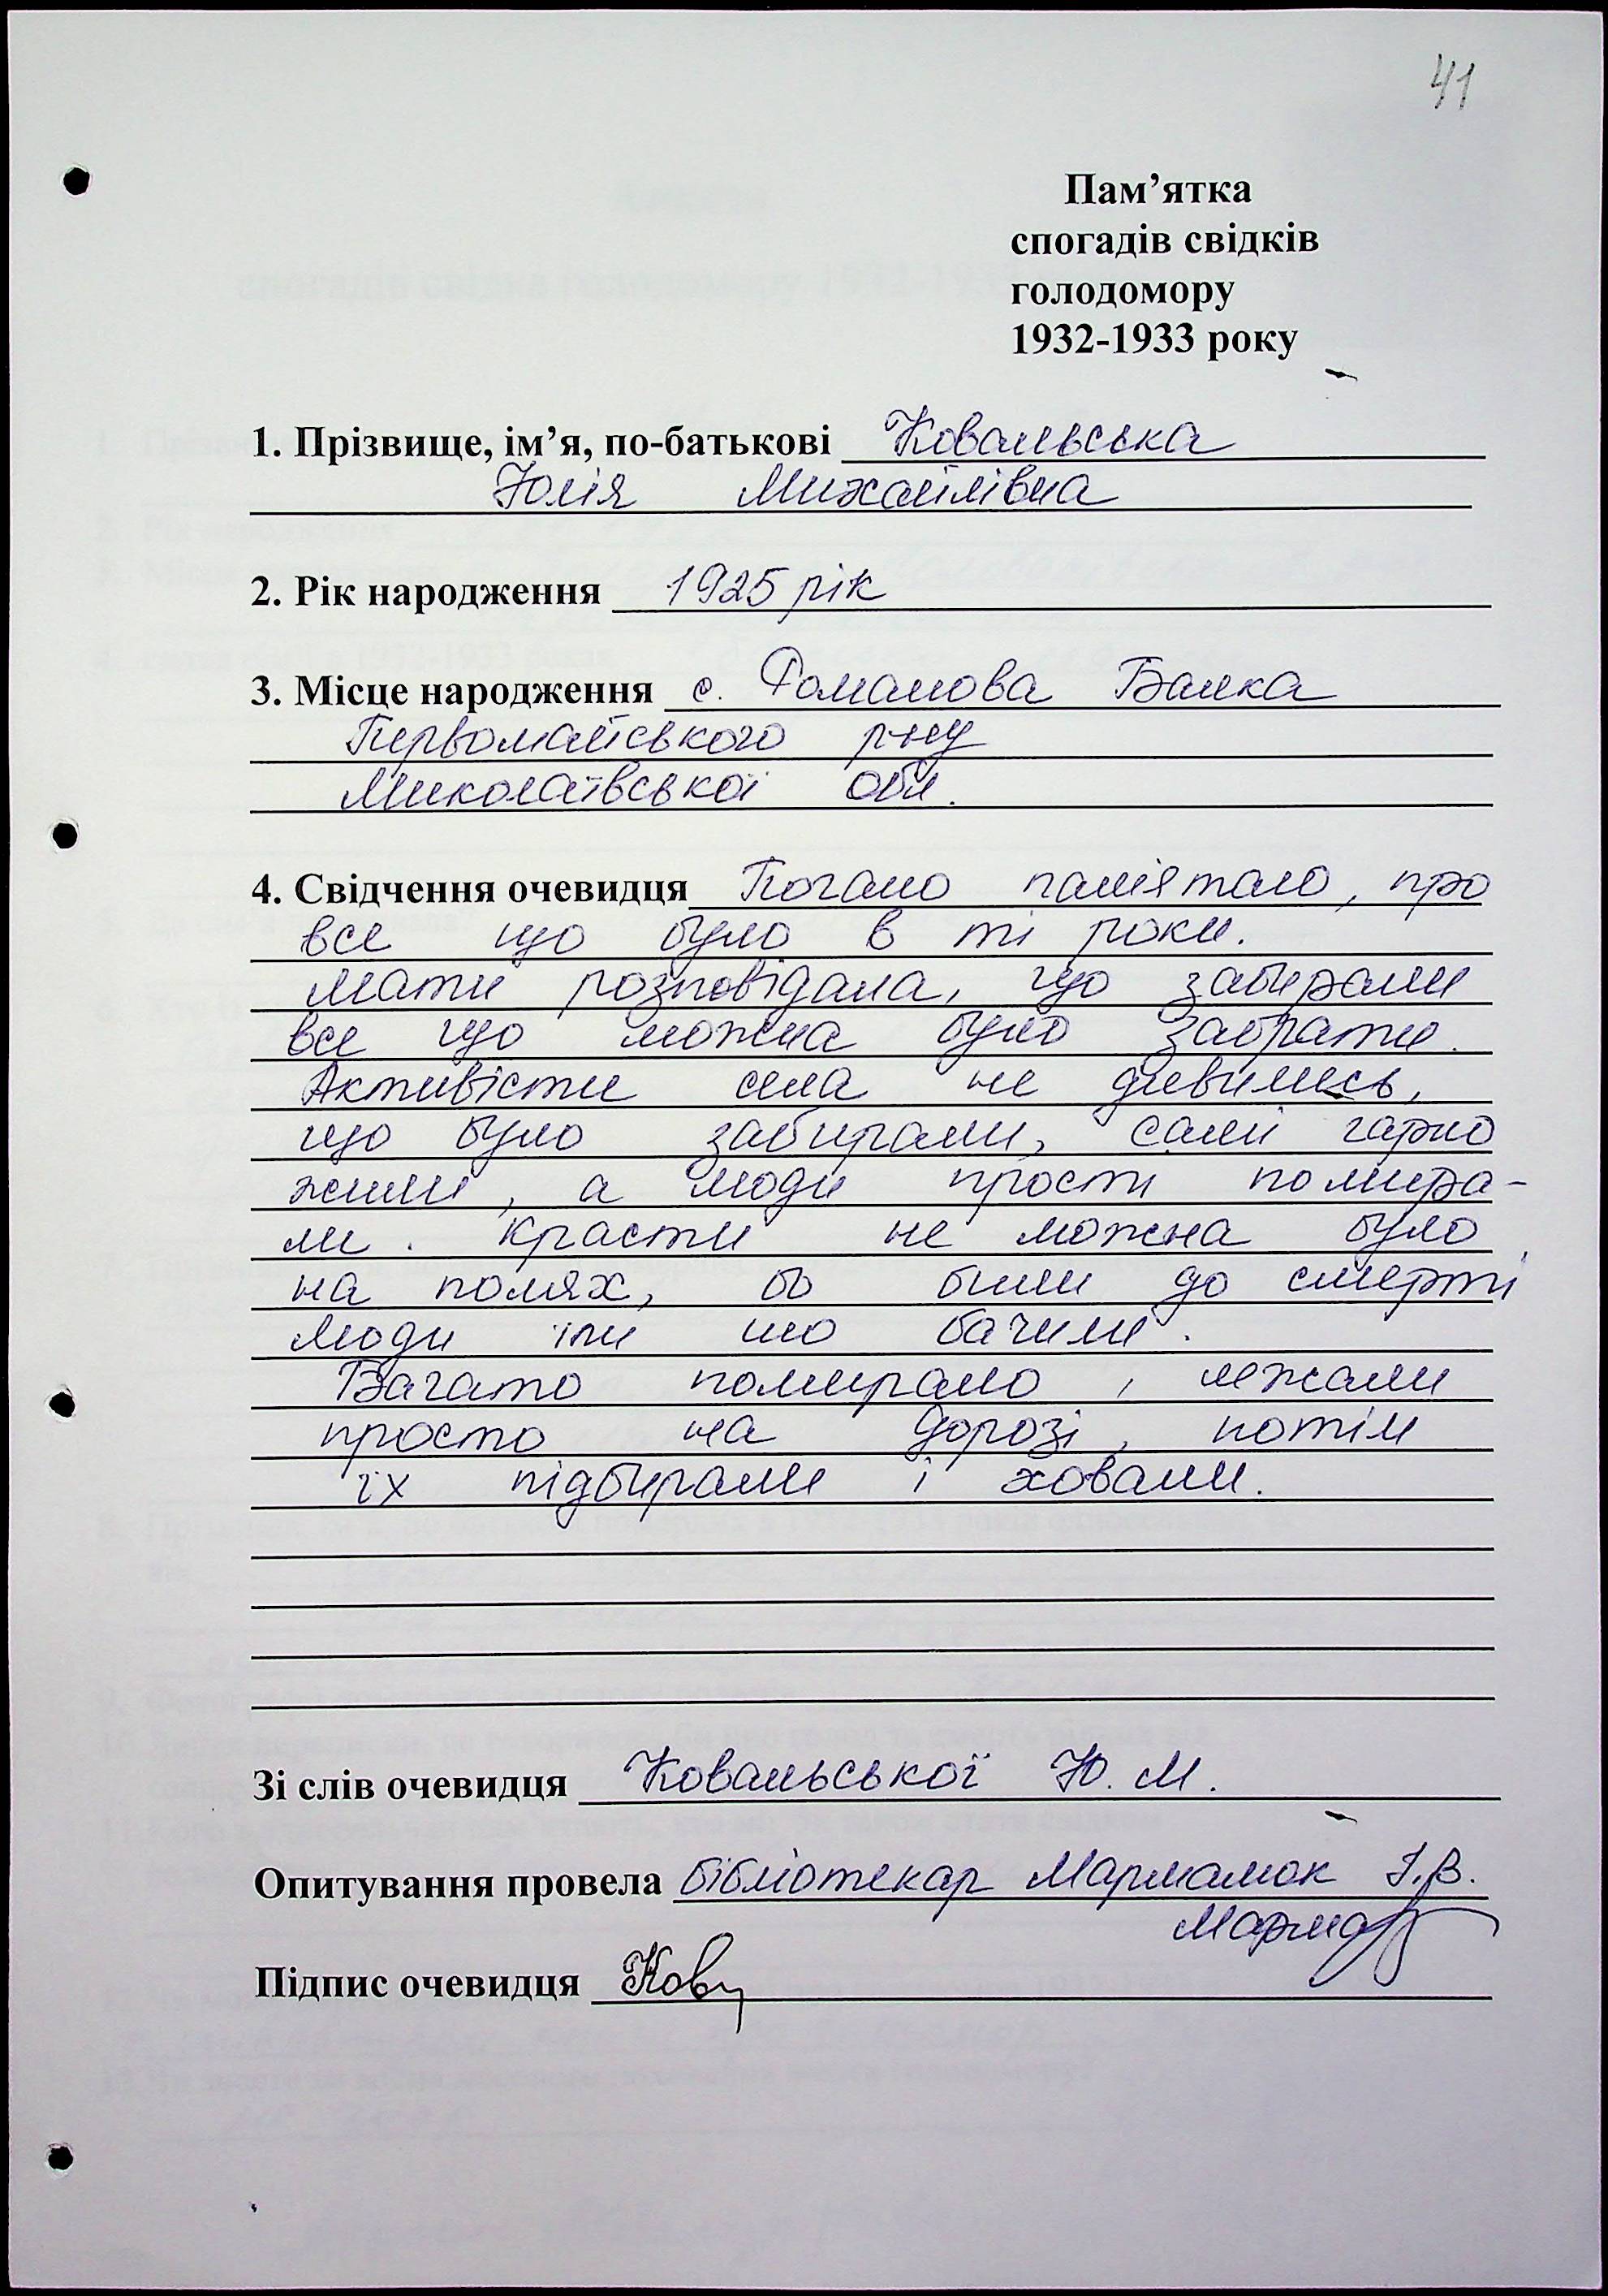 41
Пам’ятка
спогадів свідків
голодомору
1932-1933 року
1. Прізвище, ім’я, по-батькові Ковальська
Юлія Михайлівна
2. Рік народження 1925 рік
3. Місце народження с. Романова Балка
Первомайського р-ну
Миколаївської обл.
4. Свідчення очевидця Погано памʼятаю, про
все що було в ті роки.
Мати розповідала, що забирали
все що можна було забрати.
Активісти села не дивились,
що було забирали, самі гарно
жили, а люди прості помира-
ли. Красти не можна було
на полях, бо били до смерті,
люди їли шо бачили.
Багато помирало, лежали
просто на дорозі, потім
їх підбирали і ховали.
Зі слів очевидця Ковальської Ю. М.
Опитування провела бібліотекар Мармалюк І.В.
Підпис очевидця Ков